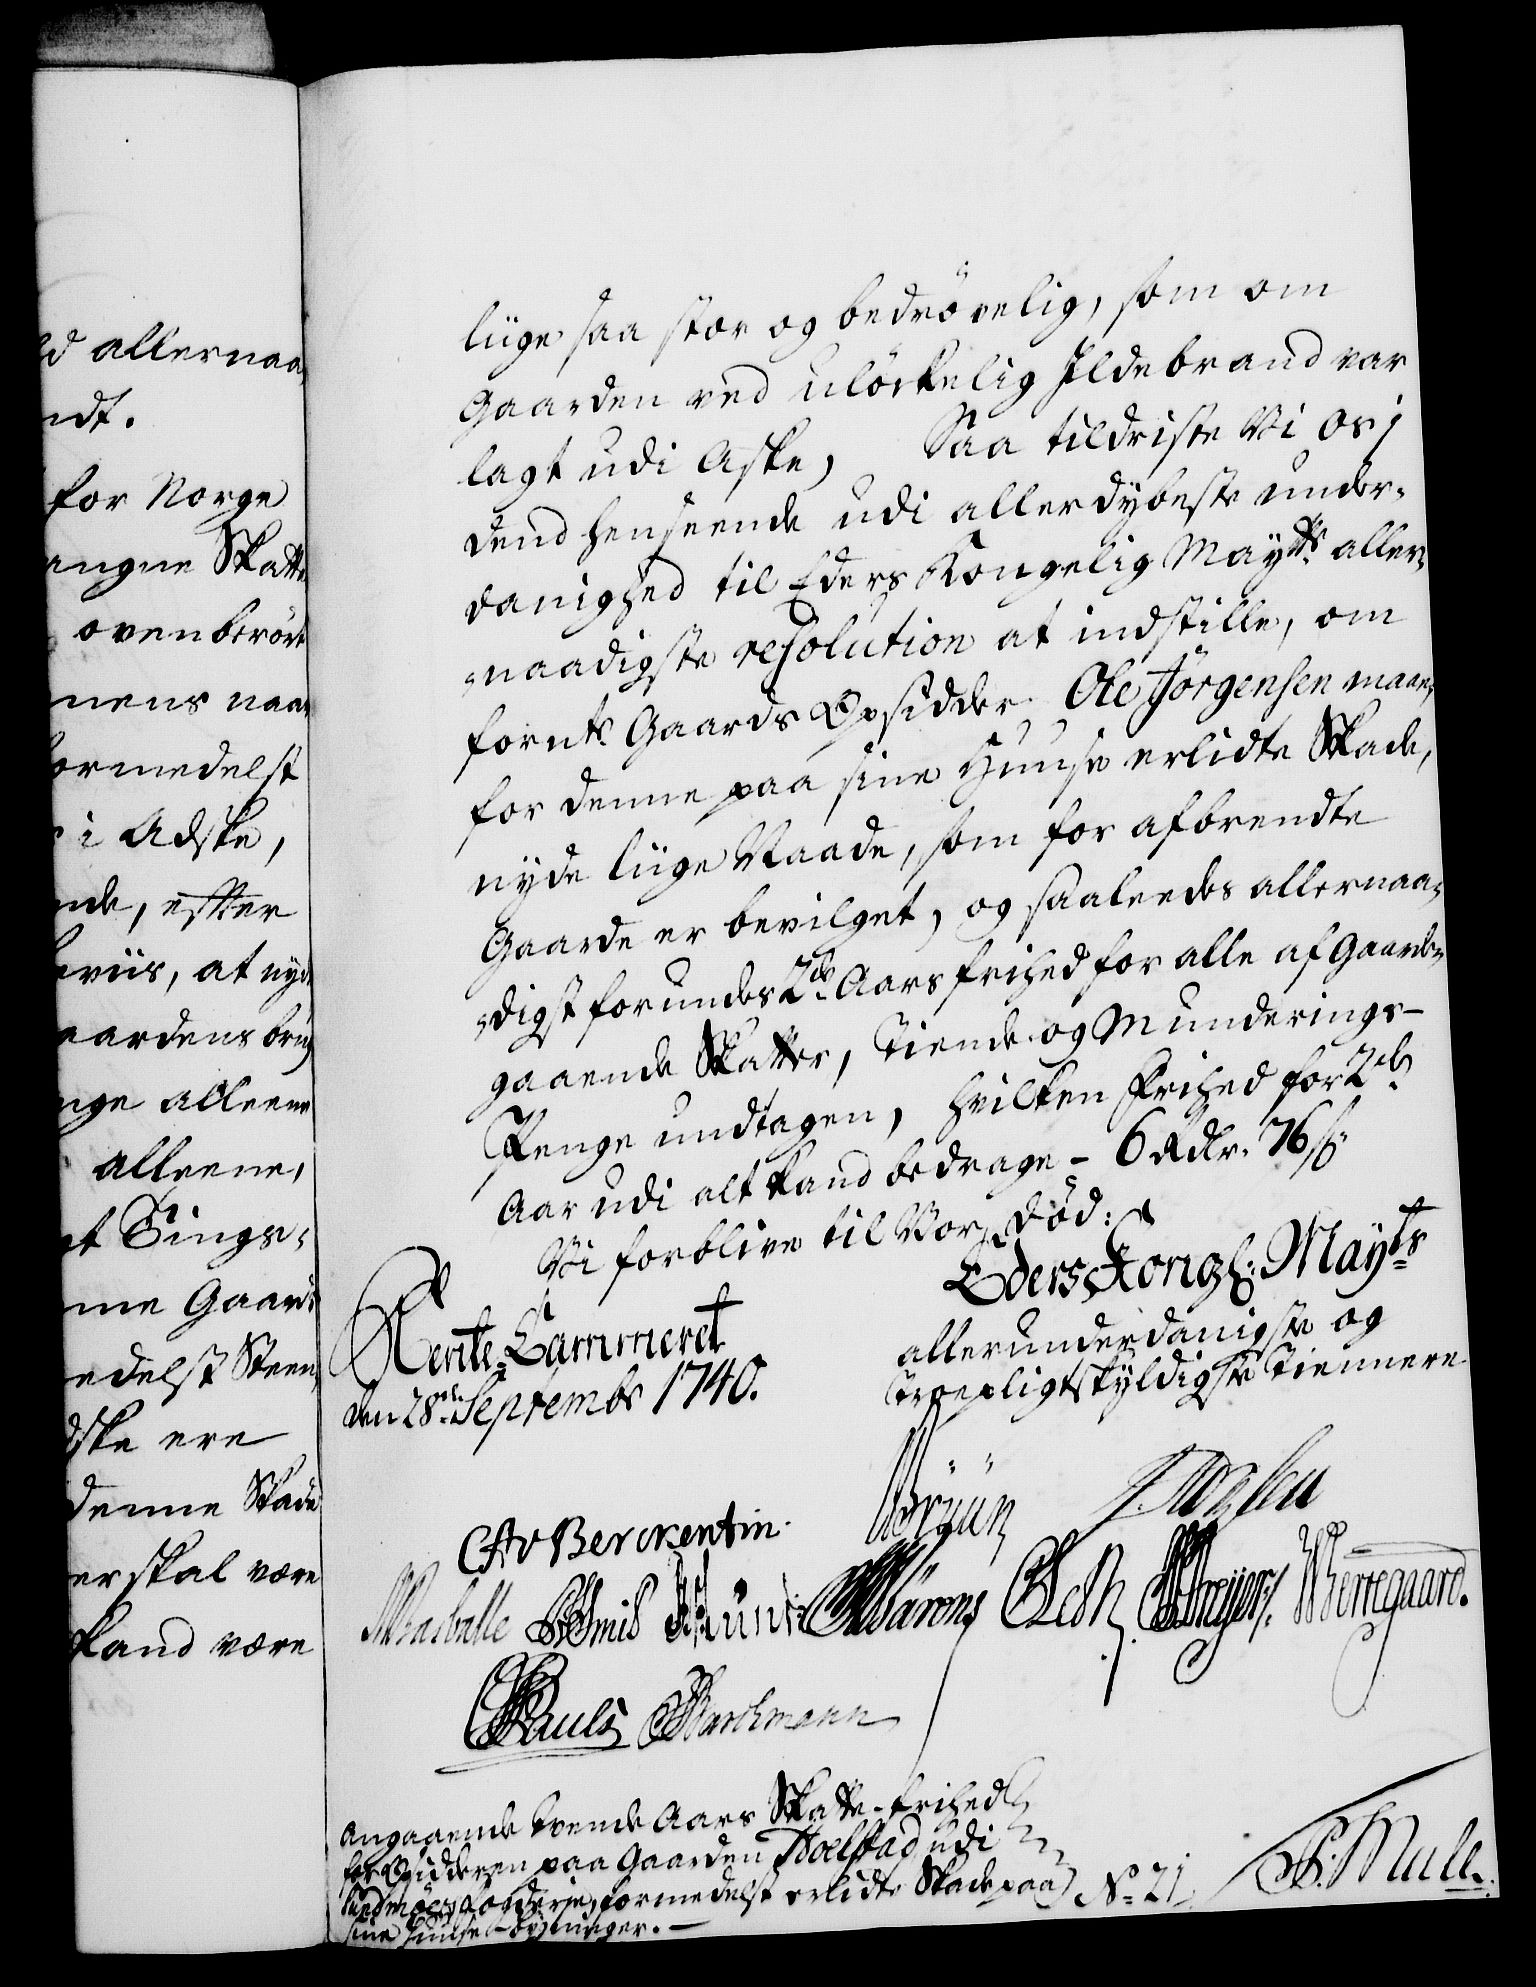 d allernaa
ndt.
for Norge
angne Skatte
ovenberört
mens naar
formedelst
i Adske,
nde, efter
beviis, at nyde
aardens brug
nge alleene
alleene,
t Tings-
me Gaard
edelst Steen,
dske ere
denne Skade
er skal være
kand være
liige saa stor og bedrövelig, som om
Gaarden ved ulöckelig Ildebrand var
lagt udi Aske, Saa tildriste Vi os i
dend henseende udi allerdybeste under-
danighed til Eders Kongelig Mayts aller-
naadigste resolution at indstille, om
fornte Gaards Opsidder Ole Jörgensen maae,
for denne paa sine Huuse erlidte Skade,
nyde liige Naade, som for afbrendte
Gaarde er bevilget, og saaleedes allernaa-
digst forundes 2de Aars frihed for alle af Gaarden
gaaende Skatter, Tiende og Munderings-
Penge undtagen, hvilken Frihed for 2de
Aar udi alt kand bedrage - 6 Rdlr. 76 s.
Vi forblive til Vor Död:
Eders Kongl: Mayts
allerunderdanigste og
troepligtskyldigste Tiennere
Rente-Cammeret
den 28de Septembr 1740.
CAv Berckentin.
Brüün
Pauli Barchmann
angaaende tvende Aars Skatte-frihed
for Opsidderen paa Gaarden Stoelstad udi
formedelst erlidte Skade paa
sine Huuse og
No 21